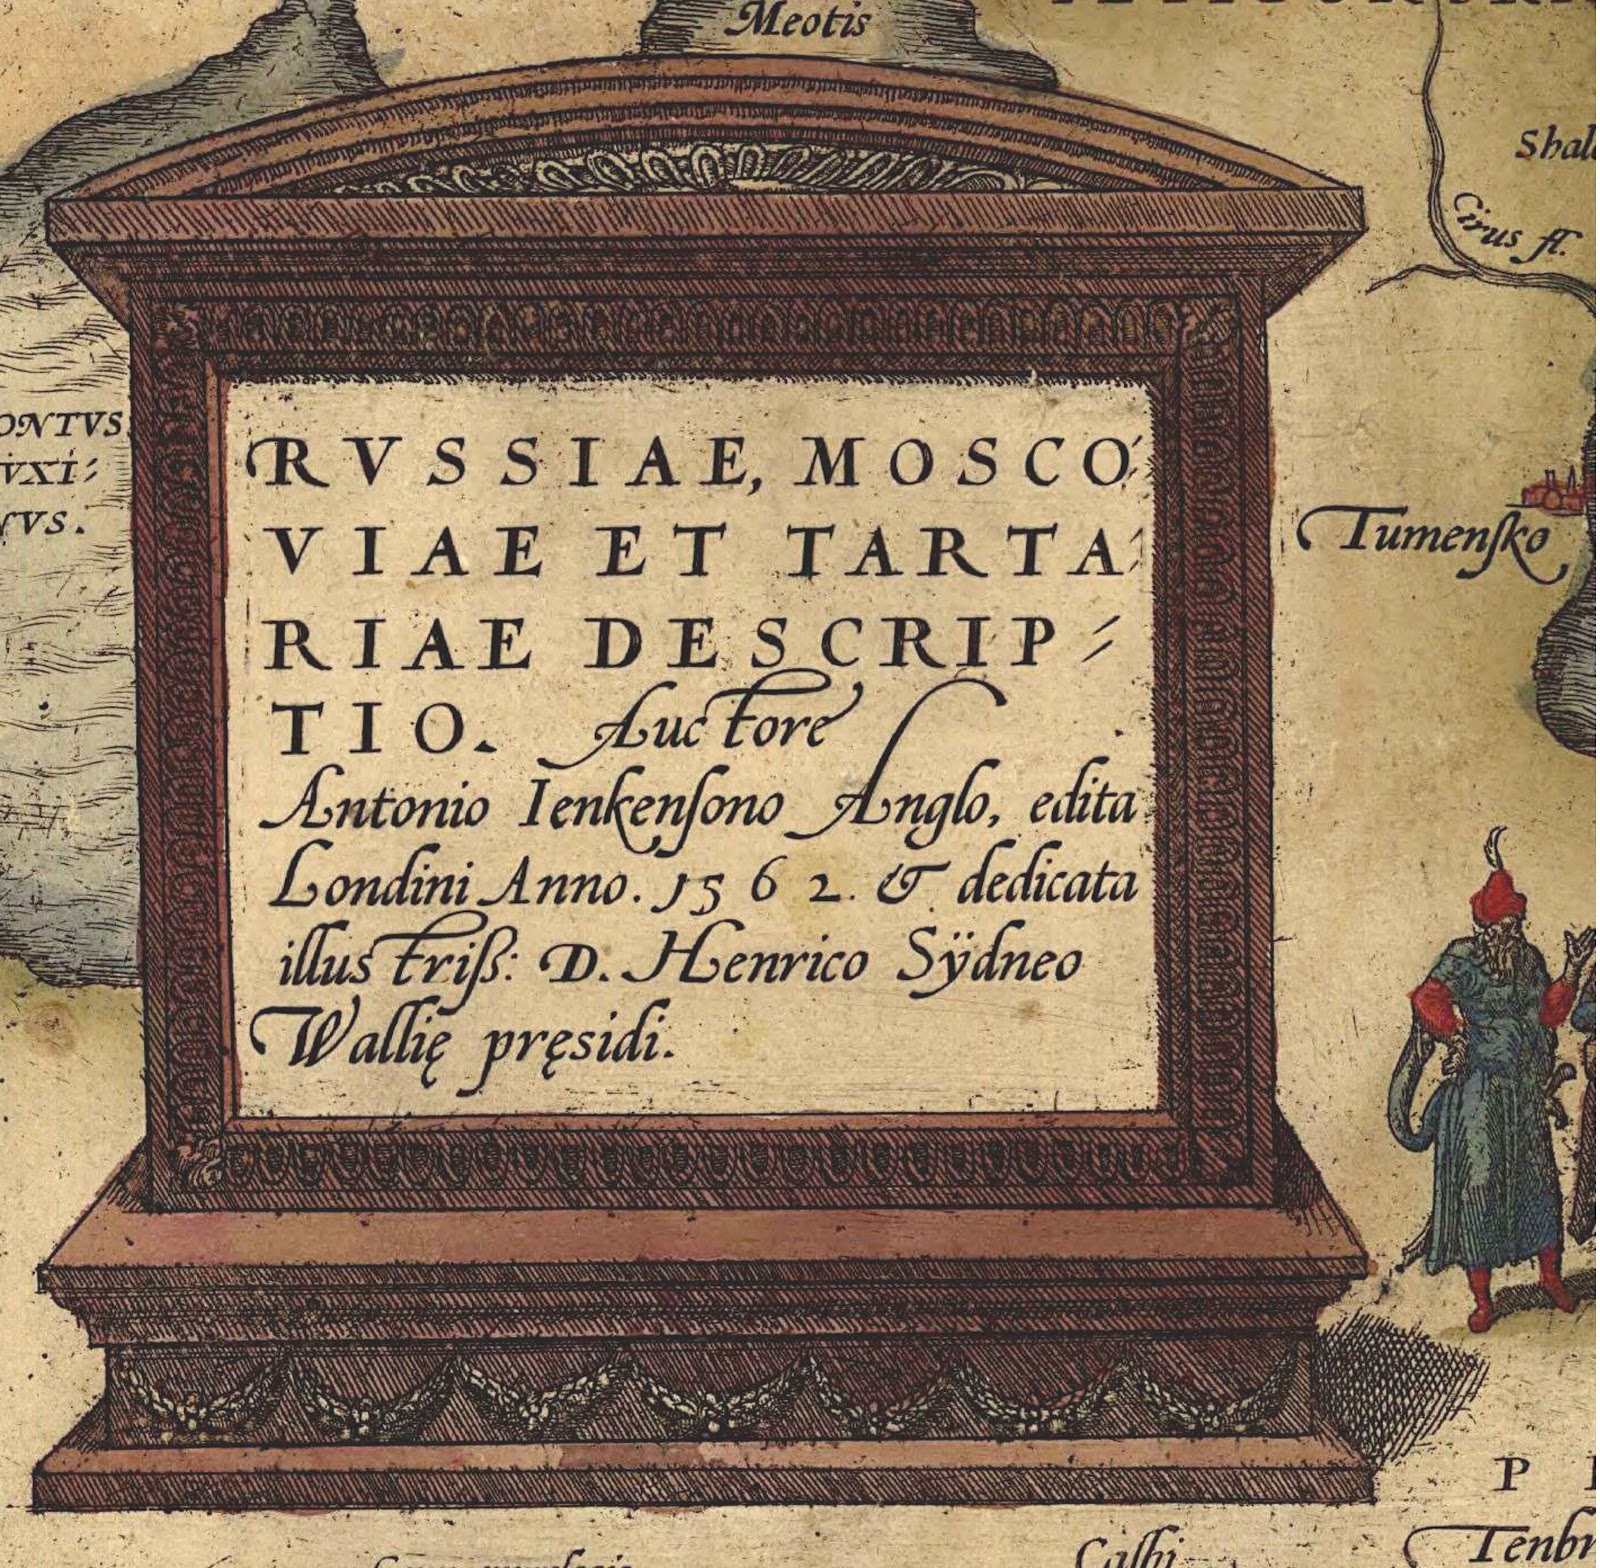 Meotis
Shal
Cirus fl.
ONTVS
VXI⸗
NVS.
RVSSIAE, MOSCO⸗
VIAE ET TARTA⸗
RIAE DESCRIP⸗
TIO. Auctore
Antonio Ienkenſono Anglo, edita
Londini Anno. 1562. & dedicata
illustriß: D. Henrico Sÿdneo
Wallię pręsidi.
Tumenſko
P
Tenbr